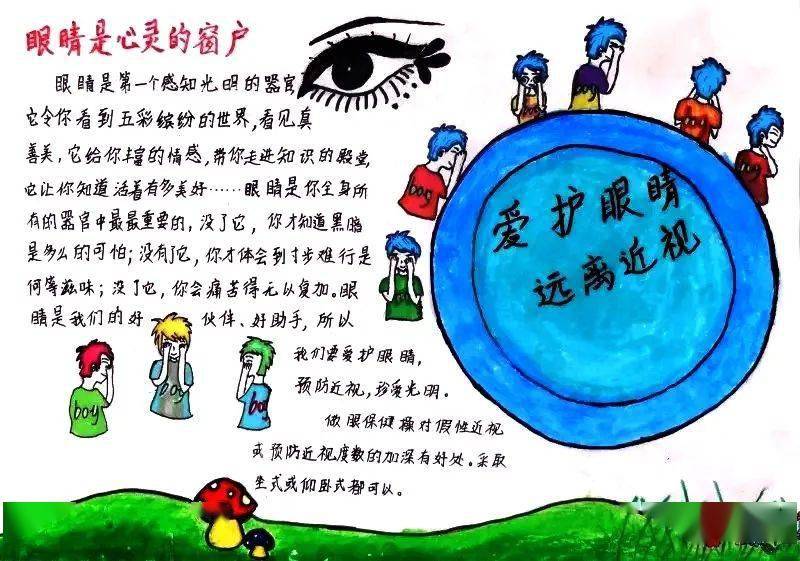 眼睛是心灵的窗户
眼睛是第一个感知光明的器官
它令你看到五彩缤纷的世界,看见真
善美,它给你丰富的情感,带你走进知识的殿堂,
它让你知道活着有多美好……眼睛是你全身所
有的器官中最最重要的,没了它,你才知道黑暗
是多么的可怕;没有了它,你才体会到寸步难行是
何等滋味;没了它,你会痛苦得无以复加。眼
睛是我们的好伙伴、好助手,所以
我们要爱护眼睛,
预防近视,珍爱光明。
做眼保健操对假性近视
或预防近视度数的加深有好处。采取
坐式或仰卧式都可以。
爱护眼睛
远离近视
boy
boy
boy
boy
boy
boy
boy